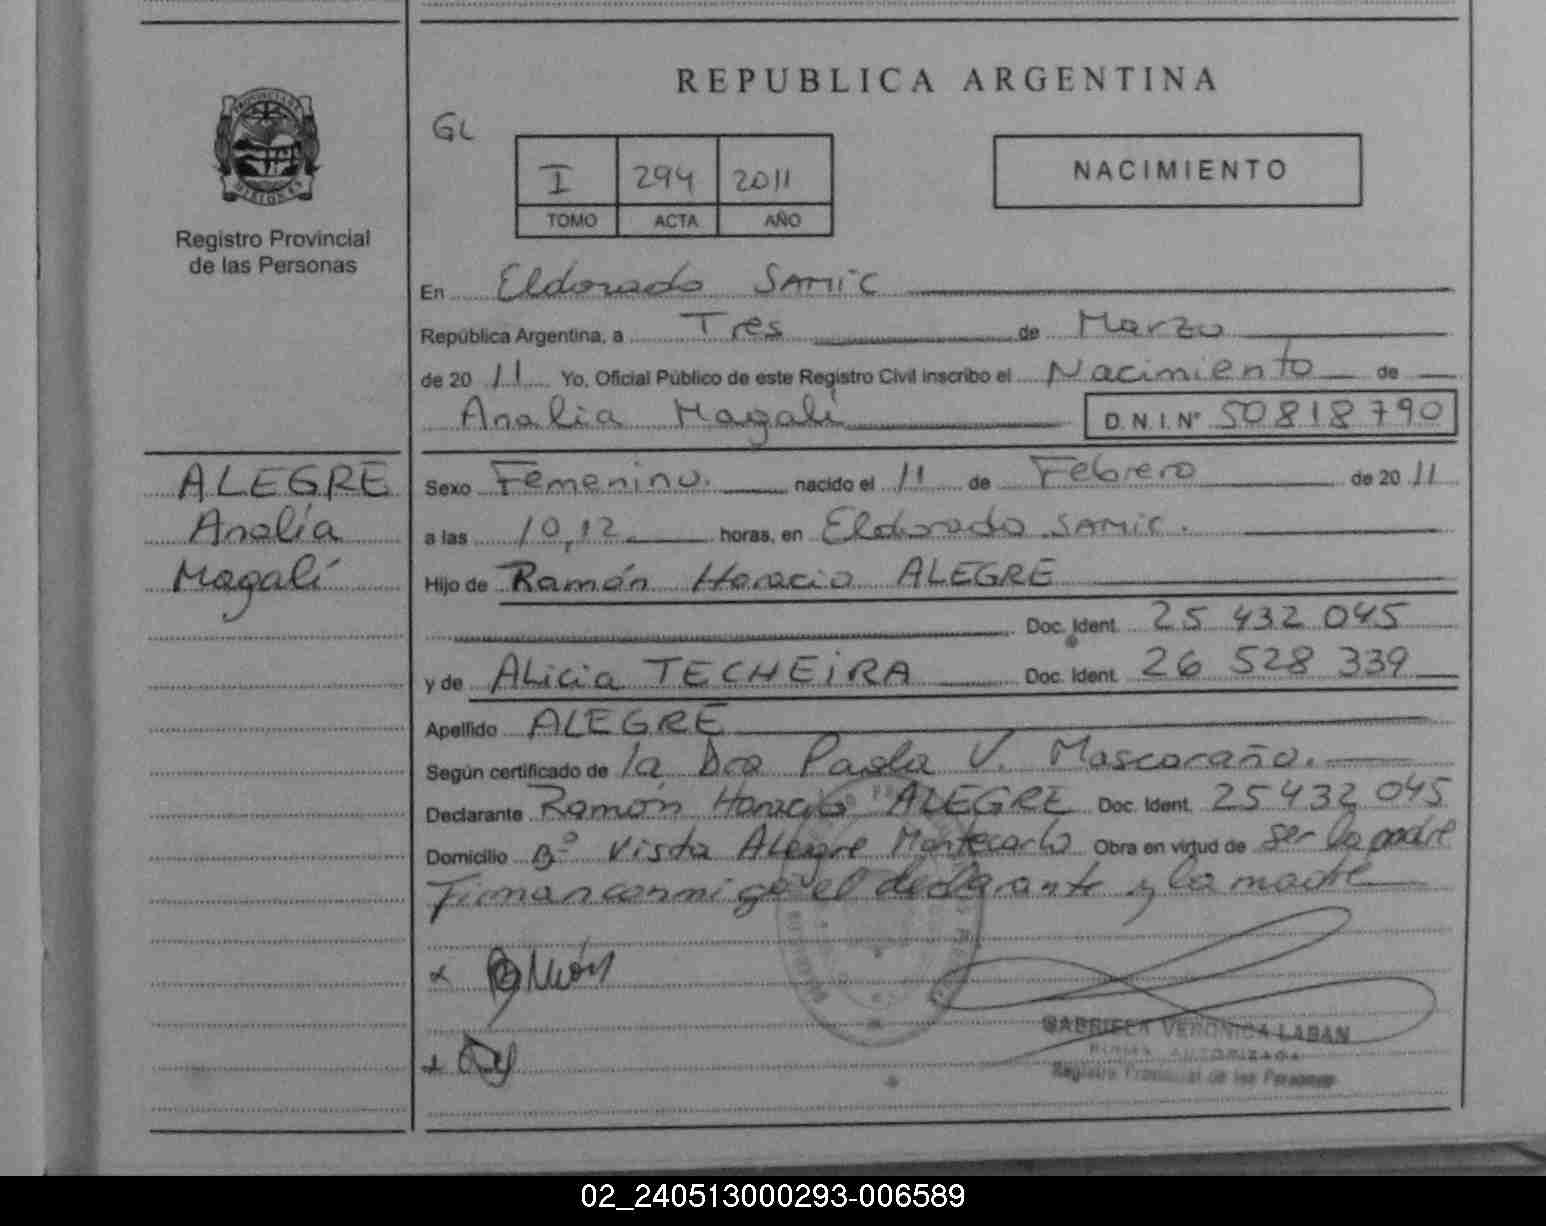 REPUBLICA ARGENTINA
GL
I 294 2011
TOMO ACTA AÑO
NACIMIENTO
Registro Provincial
de las Personas
En Eldorado SAMiC
República Argentina, a Tres de Marzo
de 20 11 Yo, Oficial Público de este Registro Civil inscribo el Nacimiento de
Analia Magalí D.N.I. Nº 50818790
ALEGRE
Analía
Magalí
Sexo Femenino. nacido el 11 de Febrero de 20 11
a las 10,12 horas, en Eldorado SAMIC.
Hijo de Ramón Horacio ALEGRE
Doc. Ident. 25 432 045
y de ALicia TECHEiRA Doc. Ident. 26 528 339
Apellido ALEGRE
Según certificado de la Dra Paola V. Mascaraño.
Declarante Ramón Horacio ALEGRE Doc. Ident. 25432 045
Domicilio Bº Vista Alegre Montecarlo Obra en virtud de ser la padre
Firman conmigo el declarante y la madre
GABRIELA VERONICA LABAN
FIRMA AUTORIZADA
Registro Provincial de las Personas
02_240513000293-006589